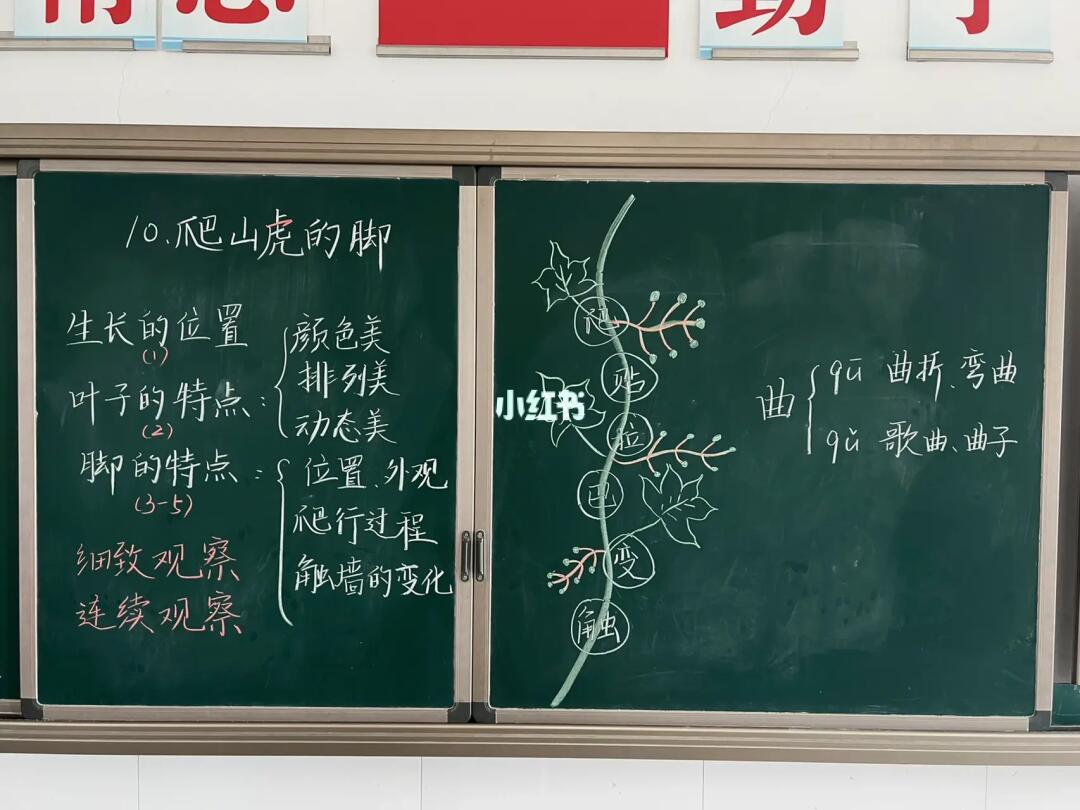 10.爬山虎的脚
生长的位置
(1)
叶子的特点:
(2)
颜色美
排列美
动态美
脚的特点:
(3-5)
位置、外观
爬行过程
触墙的变化
细致观察
连续观察
爬
贴
拉
巴
变
触
小红书
曲
qū 曲折、弯曲
qǔ 歌曲、曲子